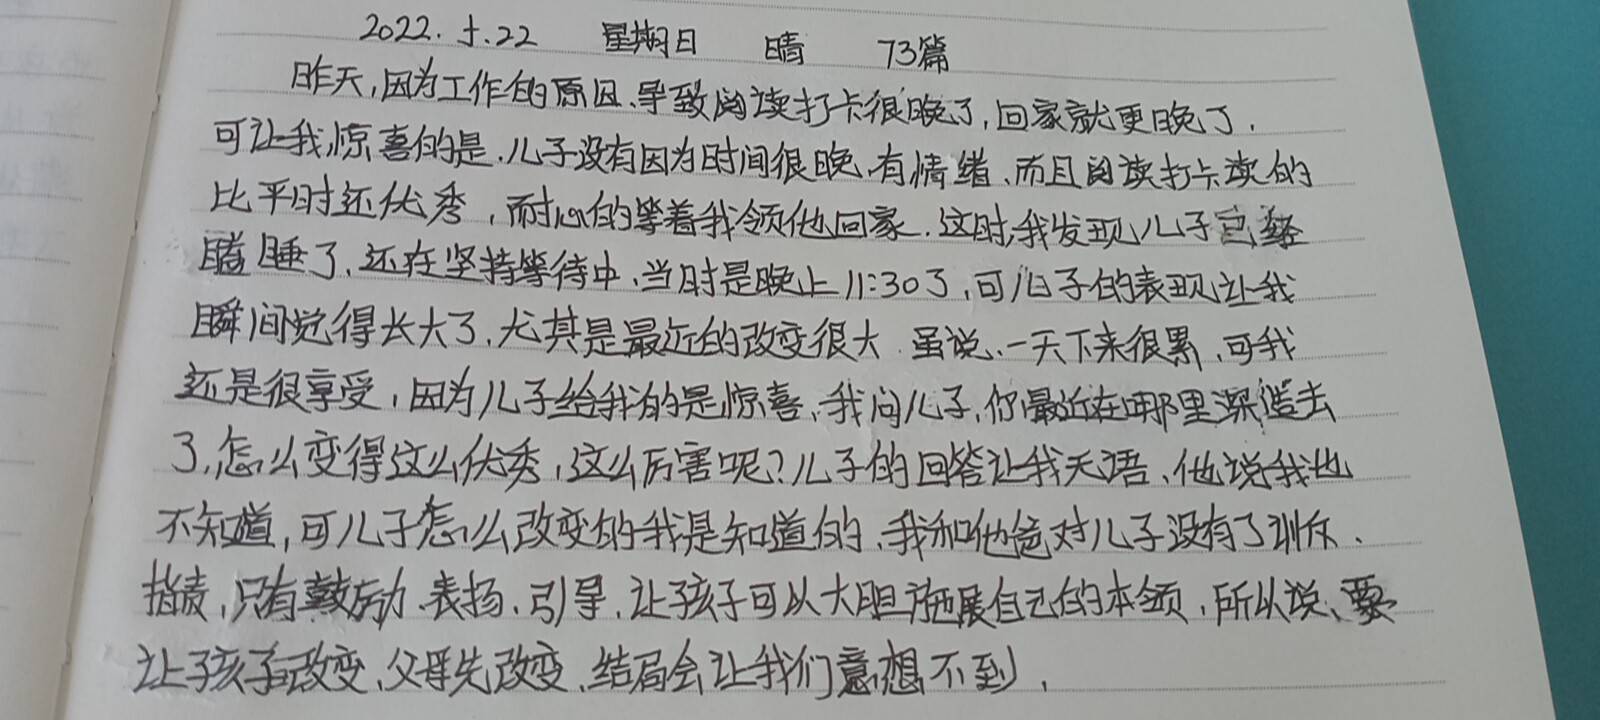 2022.5.22 星期日 晴 73篇
昨天,因为工作的原因、导致阅读打卡很晚了,回家就更晚了.
可让我惊喜的是.儿子没有因为时间很晚.有情绪、而且阅读打卡读的
比平时还优秀,耐心的等着我领他回家.这时我发现儿子已经
瞌睡了、还在坚持等待中、当时是晚上11:30了,可儿子的表现让我
瞬间觉得长大了、尤其是最近的改变很大.虽说、一天下来很累、可我
还是很享受,因为儿子给我的是惊喜、我问儿子,你最近在哪里深造去
了,怎么变得这么优秀,这么厉害呢?儿子的回答让我无语、他说我也
不知道,可儿子怎么改变的我是知道的、我和他爸对儿子没有了训斥、
指责,只有鼓励.表扬、引导、让孩子可以大胆施展自己的本领,所以说、要
让孩子改变、父母先改变、结局会让我们意想不到,